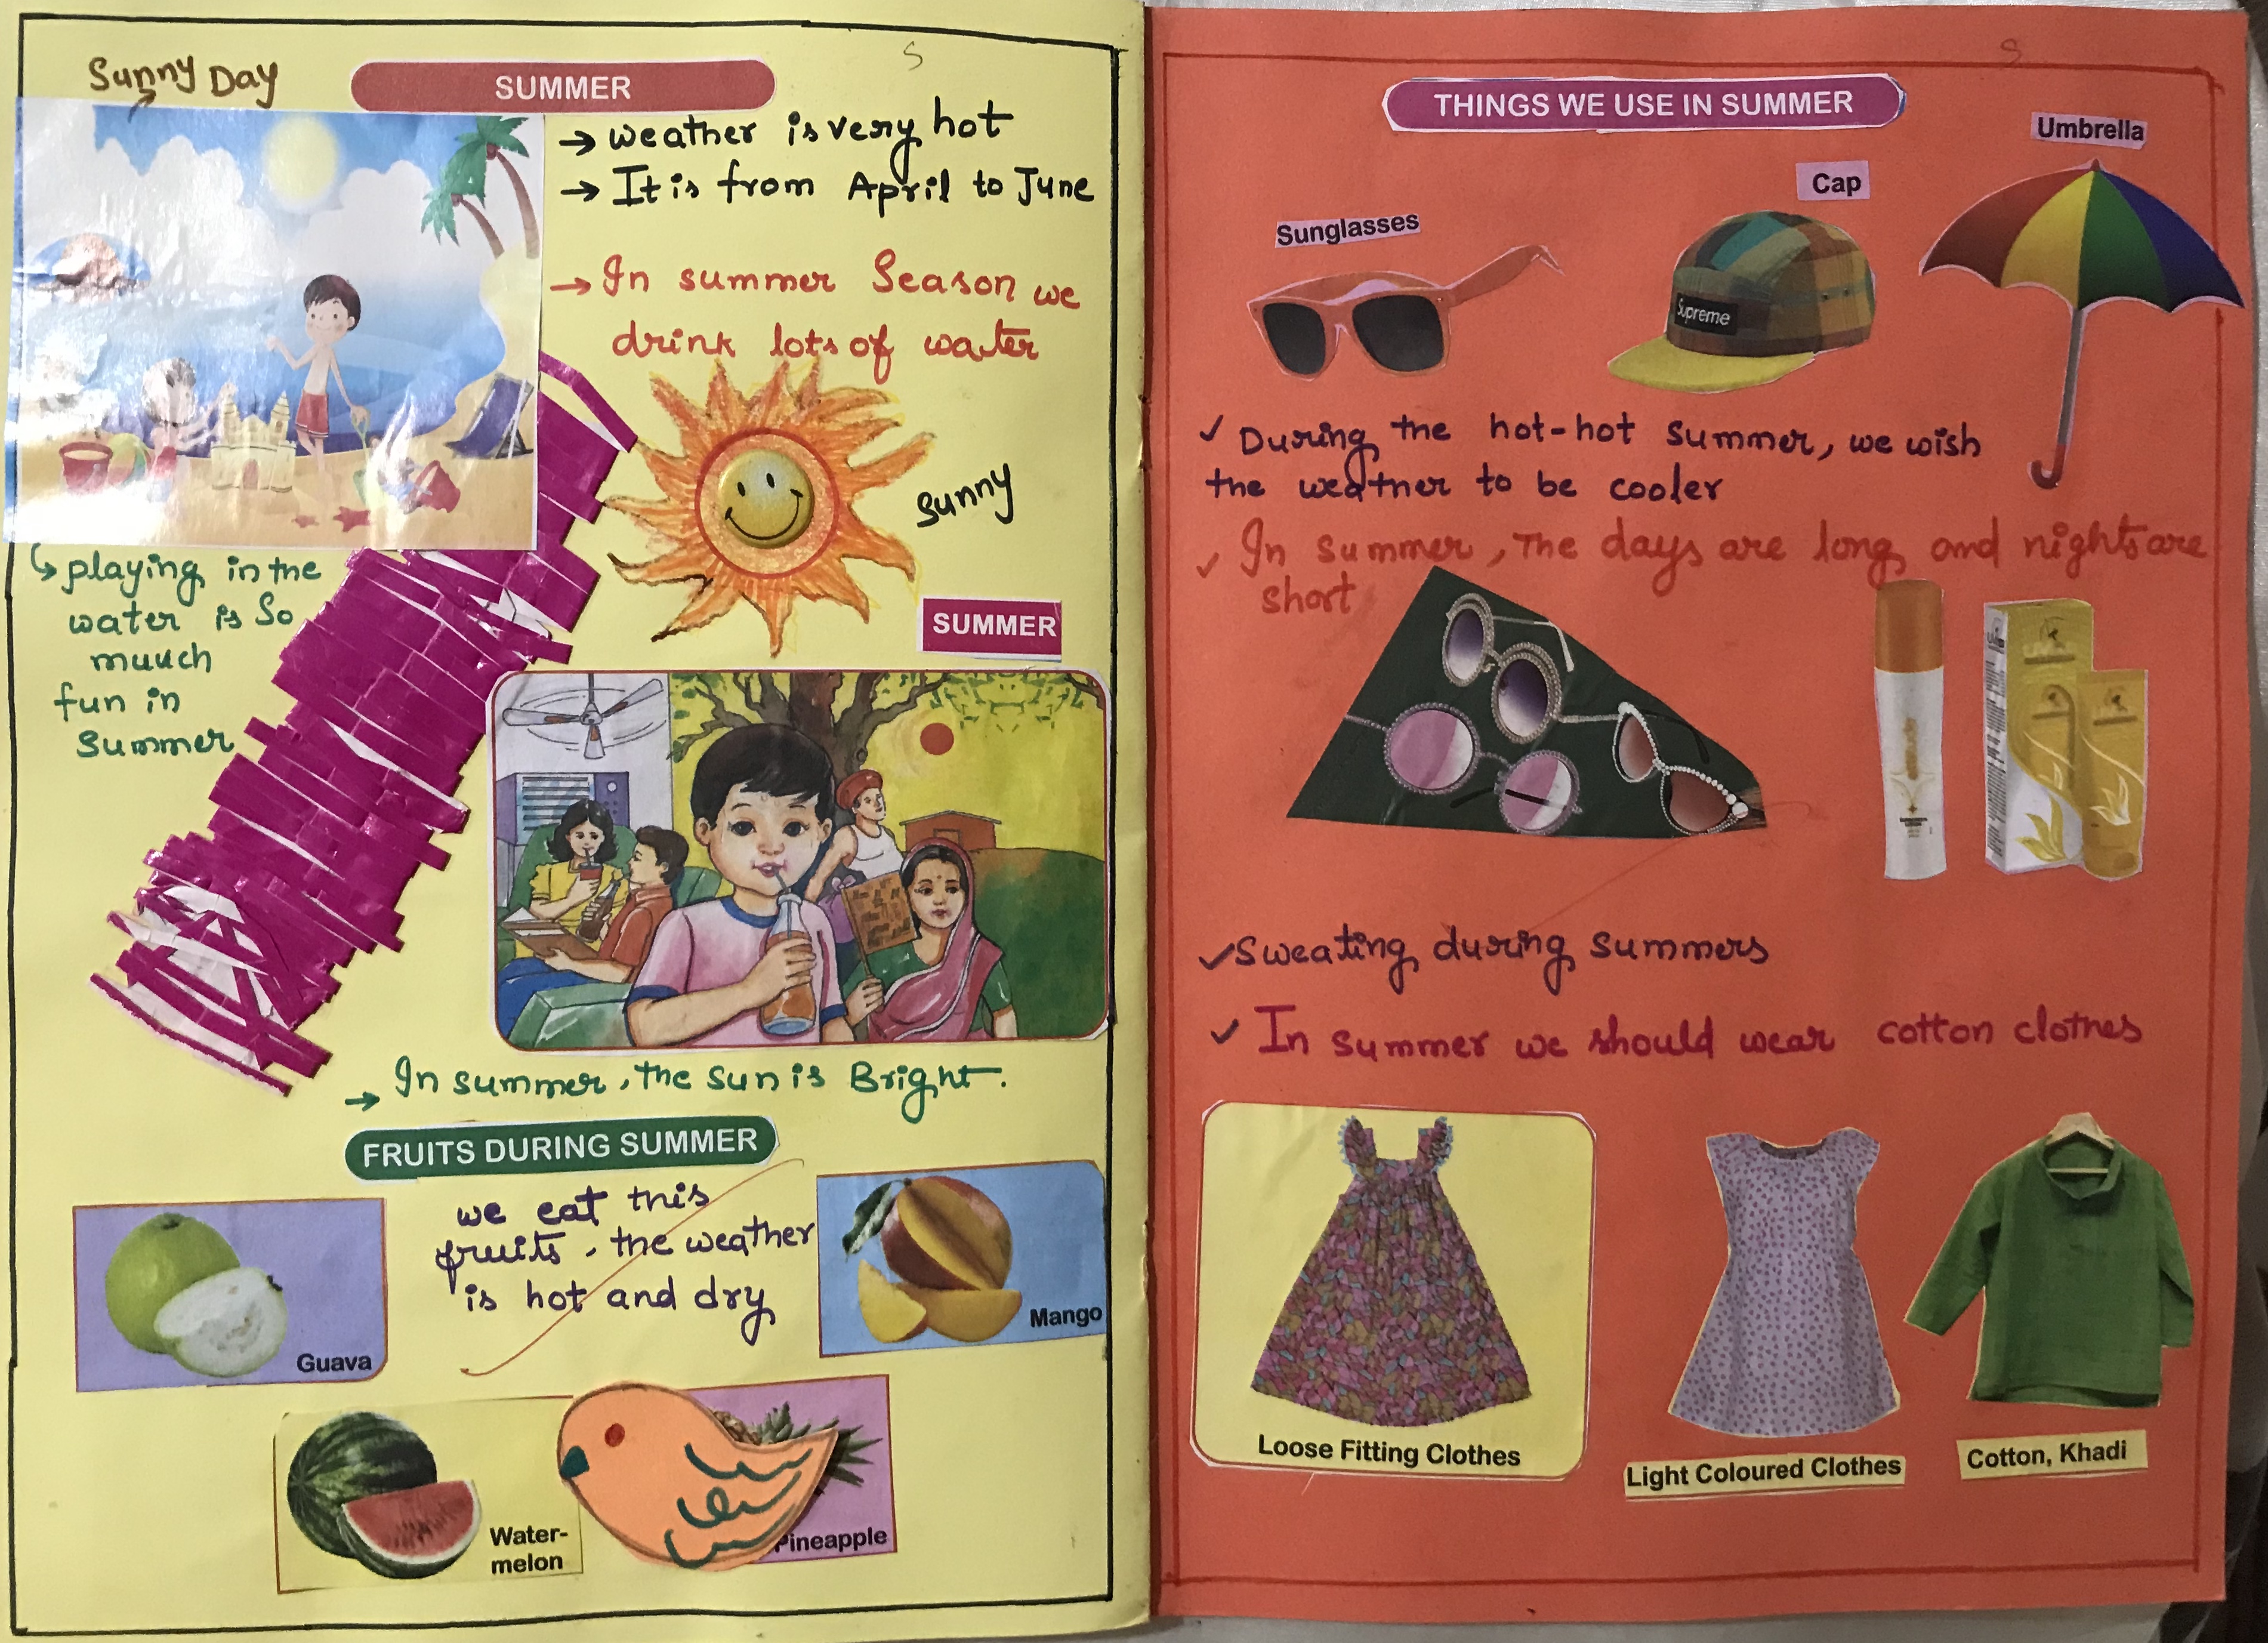 Sunny Day
SUMMER
→ weather is very hot
→ It is from April to June
→ In summer Season we
drink lots of water
sunny
playing in the
water is So
muuch
fun in
Summer
SUMMER
→ In summer, the sun is Bright.
FRUITS DURING SUMMER
we eat this
fruits, the weather
is hot and dry
Guava
Mango
Water-
melon
Pineapple
S
S
THINGS WE USE IN SUMMER
Sunglasses
Cap
Umbrella
Supreme
✓ During the hot-hot summer, we wish
the weather to be cooler
✓ In summer, The days are long and nights are
short
✓ Sweating during summers
✓ In summer we should wear cotton clothes
Loose Fitting Clothes
Light Coloured Clothes
Cotton, Khadi